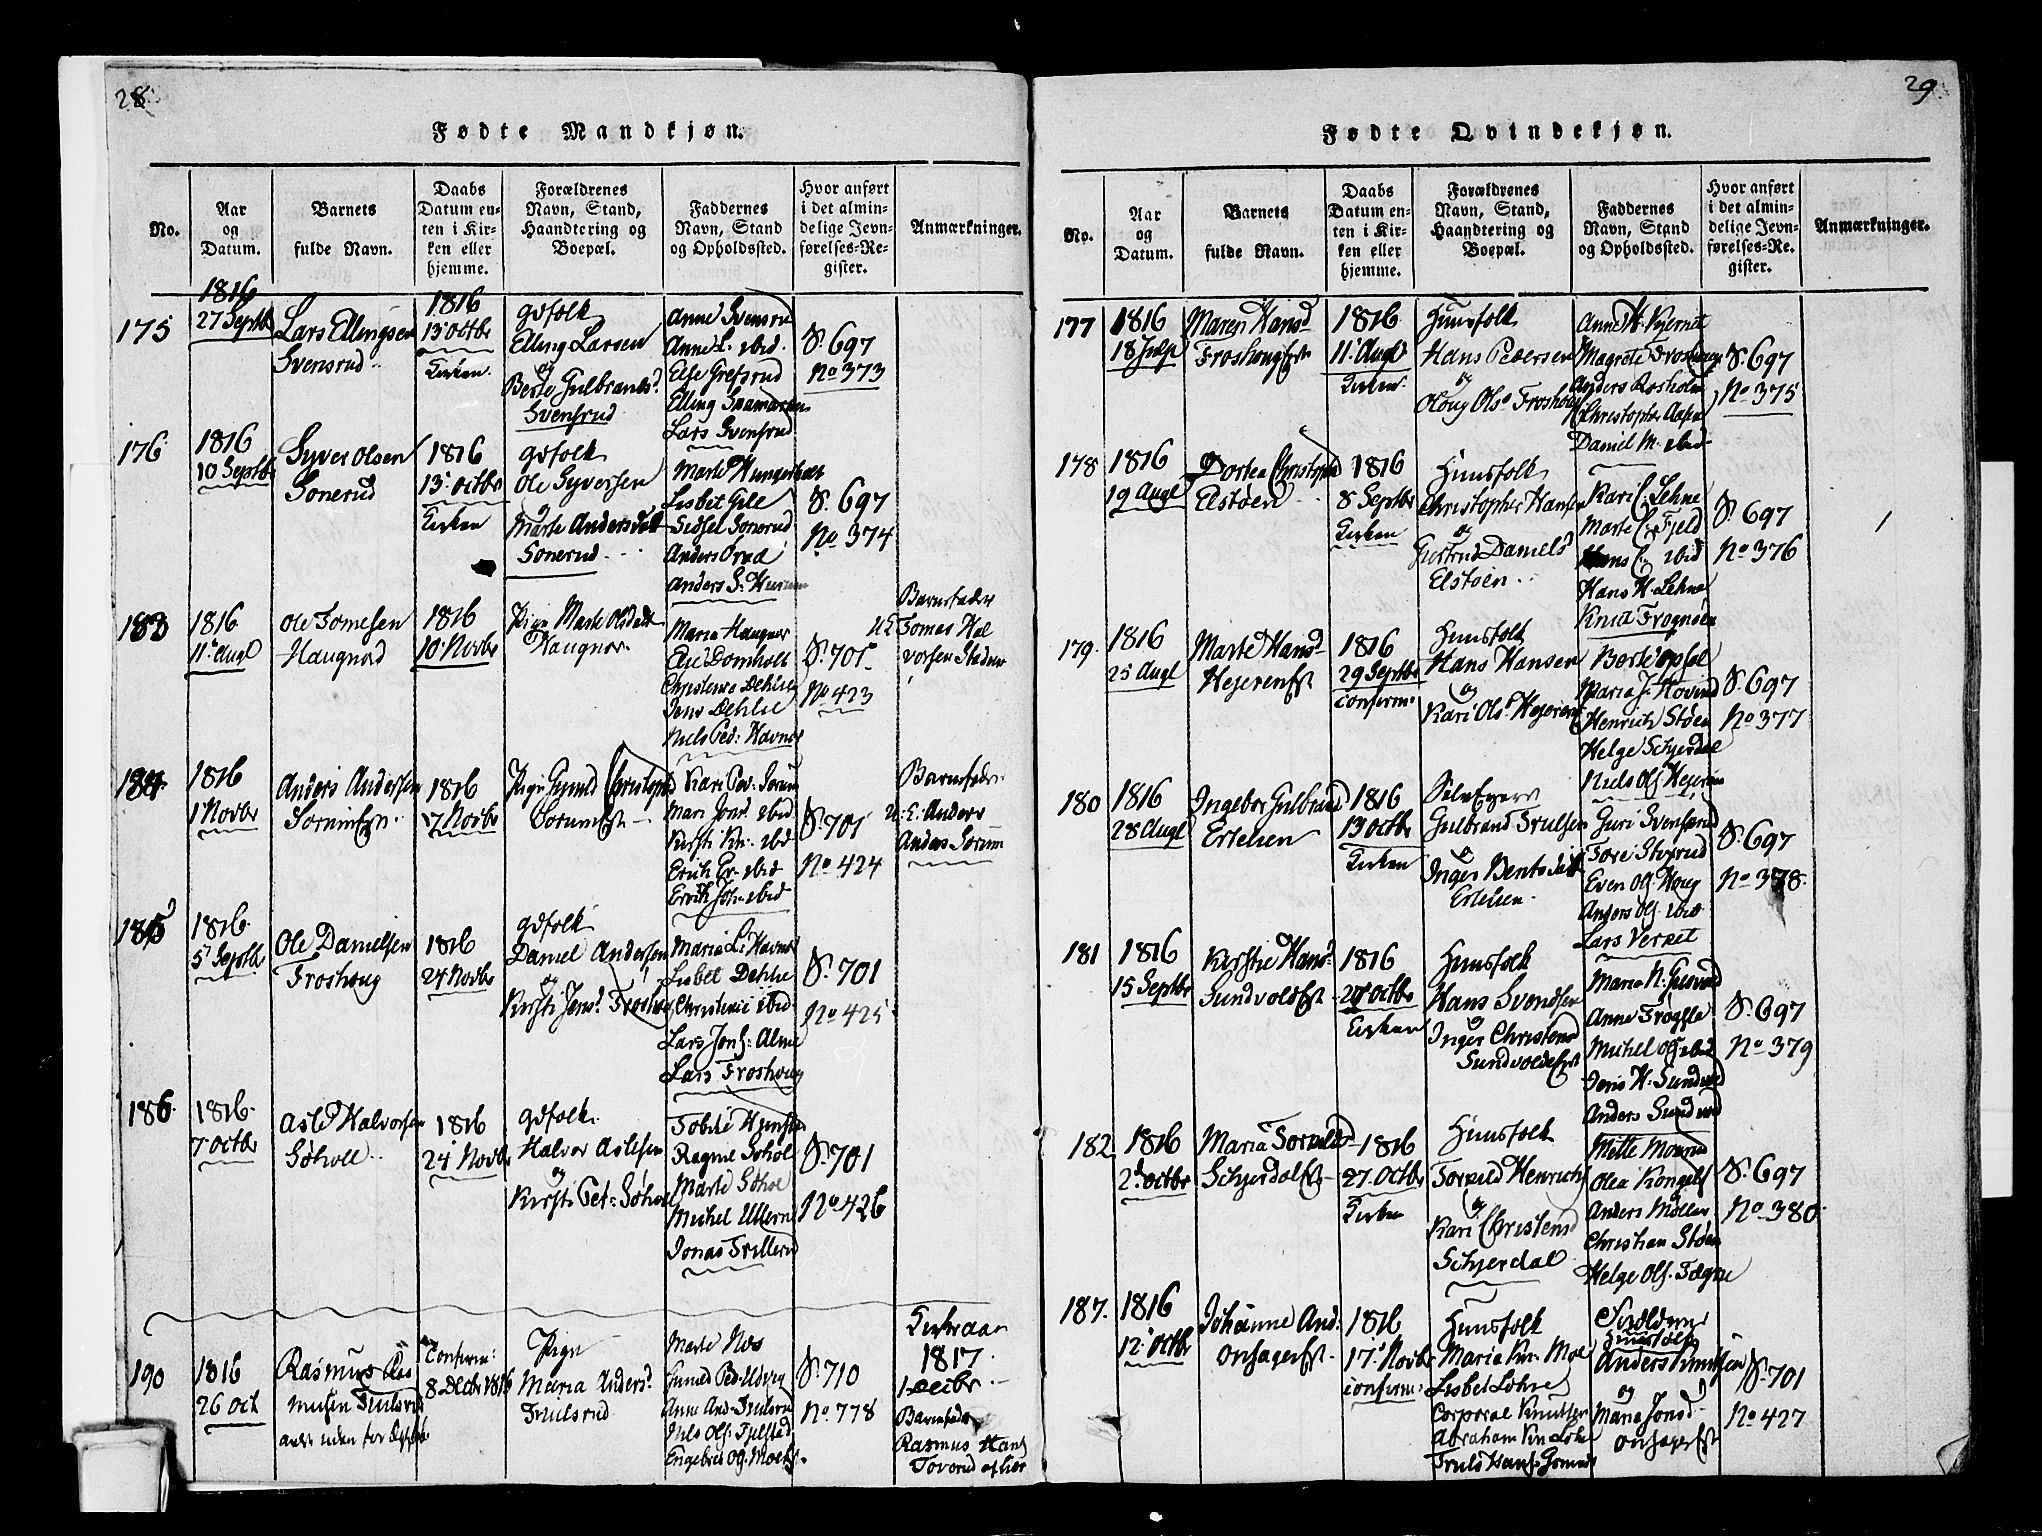 28.
Fødte Mandkjøn.
No.
Aar
og
Datum.
Barnets
fulde Navn.
Daabs
Datum en-
ten i Kir-
ken eller
hjemme.
Forældrenes
Navn, Stand,
Haandtering og
Boepæl.
Faddernes
Navn, Stand
og Opholdssted.
Hvor anført
i det almin-
delige Jevn-
førelses-Re-
gister.
Anmærkninger.
175
1816
27 Septbr
Lars Ellingsen
Svensrud
1816
13 octbr
Kirken
gdfolk
Elling Larsen
og
Berte Gulbrands.
Svensrud
Anne Svensrud
Anne L. ibid.
Else Grefsrud
Elling
Lars Svensrud
S. 697
No 373
176
1816
10 Septbr
Syver Olsen
Sonerud
1816
13 octbr
Kirken
gdfolk
Ole Syversen
og
Marte Andersdatt
Sonerud
Marte
Lisbet Gile
Sidsel Sonerud
Anders
Anders S.
S. 697
No 374
183
1816
11 Augt
Ole Tomesen
Haugnord
1816
10 Novbr
Pige Marte Olsdatt
Haugnor
Maria Haugnor
Domholt
Christense Dehlie
Jens Dehlie
Niels Ped: Havnor
S. 701
No 423
Barnefader
UE Tomas Hal
vorsen
184
1816
1 Novbr
Anders Andersen
Sorum
1816
17 Novbr
Pige Gunild Christoph
Sorum
Kari Ped. Sorum
Mari Jons. ibid
Kirsti Kn. ibid
Erich Er. ibid
Erich Joh. ibid
S. 701
No 424
Barnefader
U. E. Anders
Anders Sorum
185
1816
5 Septbr
Ole Danielsen
Froshoug
1816
24 Novbr
gdfolk
Daniel Andersen
og
Kirsti Jens. Froshoug
Maria L. Havnor
Lisbet Dehlie
Christense ibid
Lars Jons: Alme
Lars Froshoug
S. 701
No 425
186
1816
7 octbr
Asle Halvorsen
Søholl
1816
24 Novbr
gdfolk
Halvor Aslesen
og
Kirsti Pet: Søhol
Ragne Søhol
Marte Søhol
Michel Ullern
Jonas Trillerud
S. 701
No 426
190
1816
26 oct
Rasmus Ras
musen Trulsrud
Confirm:
8 Decbr 1816
Pige
Maria Anders.
Trulsrud
Marte Næs
Gunild Ped.
Anne And. Trulsru
Nils Ols. Fjelstad
Engebret
S. 710
No 778
Kirkeaar
1817
1 Decbr
Barnefader
Rasmus Hans
29
Fødte Qvindekjøn.
No.
Aar
og
Datum.
Barnets
fulde Navn.
Daabs
Datum en-
ten i Kir-
ken eller
hjemme.
Forældrenes
Navn, Stand,
Haandtering og
Boepæl.
Faddernes
Navn, Stand
og Opholdssted.
Hvor anført
i det almin-
delige Jevn-
førelses-Re-
gister.
Anmærkninger.
177
1816
18 Julj
Maren Hansd
Froshougejet
1816
11 Augt
Kirken
Huusfolk
Hans Pedersen
og
Oloug Ols. Froshoug
Anne H. Kjernet
Magrete Froshoug
Anders Rosholm
Christopher
Daniel M. ibid
S. 697
No 375
178
1816
19 Augt
Dortea Christoph
Elstøen
1816
8 Septbr
Kirken
Huusfolk
Christopher Hansen
og
Gertrud Daniels
Elstøen
Kari C. Lehne
Marte C. Fjeld
Hans C. ibid
Hans H. Lehne
Knud Frognøen
S. 697
No 376
179
1816
25 Augt
Marte Hans
Hejerenejet
1816
29 Septbr
confirm:
Huusfolk
Hans Hansen
og
Kari Ols. Hejeren
Berte opsal
Maria J. Hovind
Henrich Støen
Helge Schjerdal
Niels Ols. Hejeren
S. 697
No 377
180
1816
28 Augt
Ingebor Gulbrand
Erteleien
1816
13 octbr
Kirken
Selvejere
Gulbrand Trulsen
og
Inger Bentsdatt
Guri Svensrud
Tore
Even Ols. Houg
Anders Ols. ibid
Lars Vernet
S. 697
No 378.
181
1816
15 Septbr
Kirstie Hans
Sundvoldejet
1816
20 octbr
Kirken
Huusfolk
Hans Svendsen
og
Inger Christens
Sundvoldejet
Maria N.
Anne Frøgsle
Michel Ols ibid
Jens H. Sundvold
Anders Sundvold
S. 697
No 379
182.
1816
2 octbr
Maria Torvilds
Schjerdalejet
1816
27 Octbr
Kirken
Huusfolk
Torvild Henrichs
og
Kari Christens
Schjerdal
Mette Moerud
Olea Kongels
Anders Møller
Christian Støen
Helge Ols.
S. 697
No 380
187.
1816
12 Octbr
Johanne And:
onsagerejet
1816
17 Novbr
confirm:
Huusfolk
Maria Kn. Moe
Lisbet Lohre
Corporal Knudsen
Abraham Kn. Lohre
Truls Hans.
Huusfolk
Anders Knudsen
og
Maria Jonsd
onsagerejet
S. 701
No 427